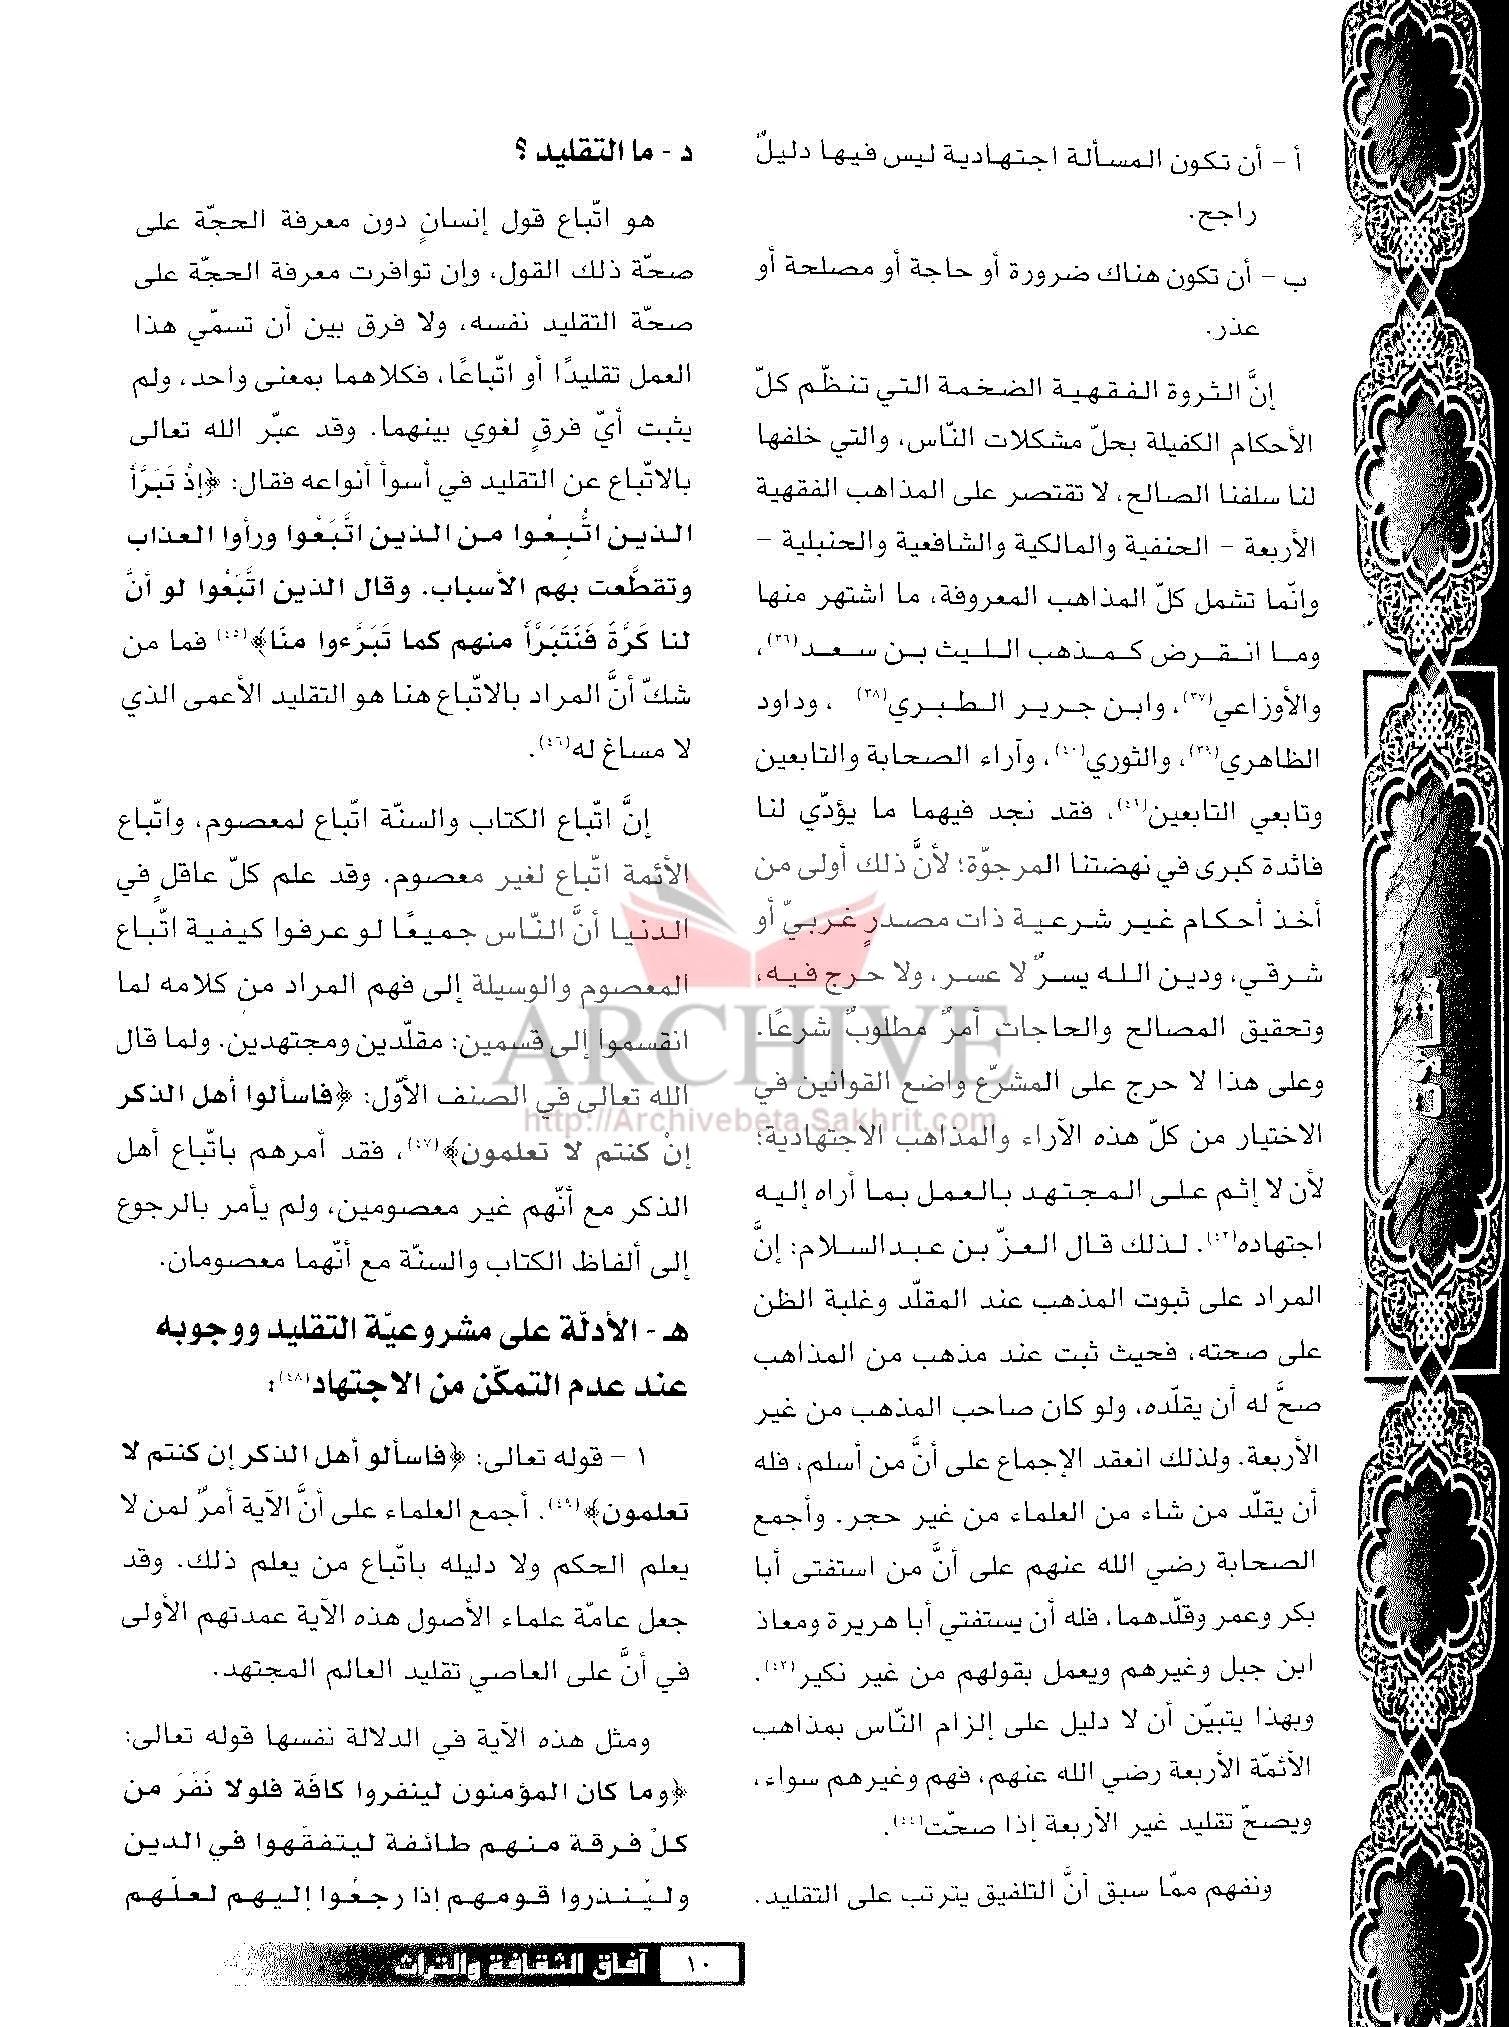 أ - أن تكون المسألة اجتهادية ليس فيها دليلٌ
راجح.
ب - أن تكون هناك ضرورة أو حاجة أو مصلحة أو
عذر.
إنَّ الثروة الفقهية الضخمة التي تنظّم كلّ
الأحكام الكفيلة بحلّ مشكلات النّاس، والتي خلفها
لنا سلفنا الصالح، لا تقتصر على المذاهب الفقهية
الأربعة - الحنفية والمالكية والشافعية والحنبلية -
وإنّما تشمل كلّ المذاهب المعروفة، ما اشتهر منها
وما انقرض كمذهب الليث بن سعد(٣٦)،
والأوزاعي(٣٧)، وابن جرير الطبري(٣٨)، وداود
الظاهري(٣٩)، والثوري(٤٠)، وآراء الصحابة والتابعين
وتابعي التابعين(٤١)، فقد نجد فيهما ما يؤدّي لنا
فائدة كبرى في نهضتنا المرجوّة؛ لأنَّ ذلك أولى من
أخذ أحكام غير شرعية ذات مصدرٍ غربيّ أو
شرقي، ودين الله يسرٌ لا عسر، ولا حرج فيه،
وتحقيق المصالح والحاجات أمرٌ مطلوبٌ شرعًا.
وعلى هذا لا حرج على المشرّع واضع القوانين في
الاختيار من كلّ هذه الآراء والمذاهب الاجتهادية؛
لأن لا إثم على المجتهد بالعمل بما أراه إليه
اجتهاده(٤٢). لذلك قال العزّ بن عبدالسلام: إنَّ
المراد على ثبوت المذهب عند المقلّد وغلبة الظن
على صحته، فحيث ثبت عند مذهب من المذاهب
صحَّ له أن يقلّده، ولو كان صاحب المذهب من غير
الأربعة. ولذلك انعقد الإجماع على أنَّ من أسلم، فله
أن يقلّد من شاء من العلماء من غير حجر. وأجمع
الصحابة رضي الله عنهم على أنَّ من استفتى أبا
بكر وعمر وقلّدهما، فله أن يستفتي أبا هريرة ومعاذ
ابن جبل وغيرهم ويعمل بقولهم من غير نكير(٤٣).
وبهذا يتبيّن أن لا دليل على إلزام النّاس بمذاهب
الأئمّة الأربعة رضي الله عنهم، فهم وغيرهم سواء،
ويصحّ تقليد غير الأربعة إذا صحّت(٤٤).
ونفهم ممّا سبق أنَّ التلفيق يترتب على التقليد.
د - ما التقليد ؟
هو اتّباع قول إنسانٍ دون معرفة الحجّة على
صحّة ذلك القول، وإن توافرت معرفة الحجّة على
صحّة التقليد نفسه، ولا فرق بين أن تسمّي هذا
العمل تقليدًا أو اتّباعًا، فكلاهما بمعنى واحد، ولم
يثبت أيّ فرقٍ لغوي بينهما. وقد عبّر الله تعالى
بالاتّباع عن التقليد في أسوأ أنواعه فقال: ﴿إذْ تَبَرَّأ
الذين اتُّبِعُوا من الذين اتَّبَعُوا ورأوا العذاب
وتقطَّعت بهم الأسباب. وقال الذين اتَّبَعُوا لو أنَّ
لنا كَرَّةً فَنَتَبَرَّأ منهم كما تَبَرَّءوا منّا﴾(٤٥) فما من
شكّ أنَّ المراد بالاتّباع هنا هو التقليد الأعمى الذي
لا مساغ له(٤٦).
إنَّ اتّباع الكتاب والسنّة اتّباع لمعصوم، واتّباع
الأئمة اتّباع لغير معصوم. وقد علم كلّ عاقلٍ في
الدنيا أنَّ النّاس جميعًا لو عرفوا كيفية اتّباع
المعصوم والوسيلة إلى فهم المراد من كلامه لما
انقسموا إلى قسمين: مقلّدين ومجتهدين. ولما قال
الله تعالى في الصنف الأوّل: ﴿فاسألوا أهل الذكر
إنْ كنتم لا تعلمون﴾(٤٧)، فقد أمرهم باتّباع أهل
الذكر مع أنّهم غير معصومين، ولم يأمر بالرجوع
إلى ألفاظ الكتاب والسنّة مع أنّهما معصومان.
هـ - الأدلّة على مشروعيّة التقليد ووجوبه
عند عدم التمكّن من الاجتهاد(٤٨):
١ - قوله تعالى: ﴿فاسألو أهل الذكر إن كنتم لا
تعلمون﴾(٤٩). أجمع العلماء على أنَّ الآية أمرٌ لمن لا
يعلم الحكم ولا دليله باتّباع من يعلم ذلك. وقد
جعل عامّة علماء الأصول هذه الآية عمدتهم الأولى
في أنَّ على العاصي تقليد العالم المجتهد.
ومثل هذه الآية في الدلالة نفسها قوله تعالى:
﴿وما كان المؤمنون لينفروا كافّة فلولا نَفَرَ من
كلّ فرقة منهم طائفة ليتفقهوا في الدين
وليُنذروا قومهم إذا رجعُوا إليهم لعلّهم
مقالات
ARCHIVE
http://Archivebeta.Sakhrit.com
١٠ آفاق الثقافة والتراث